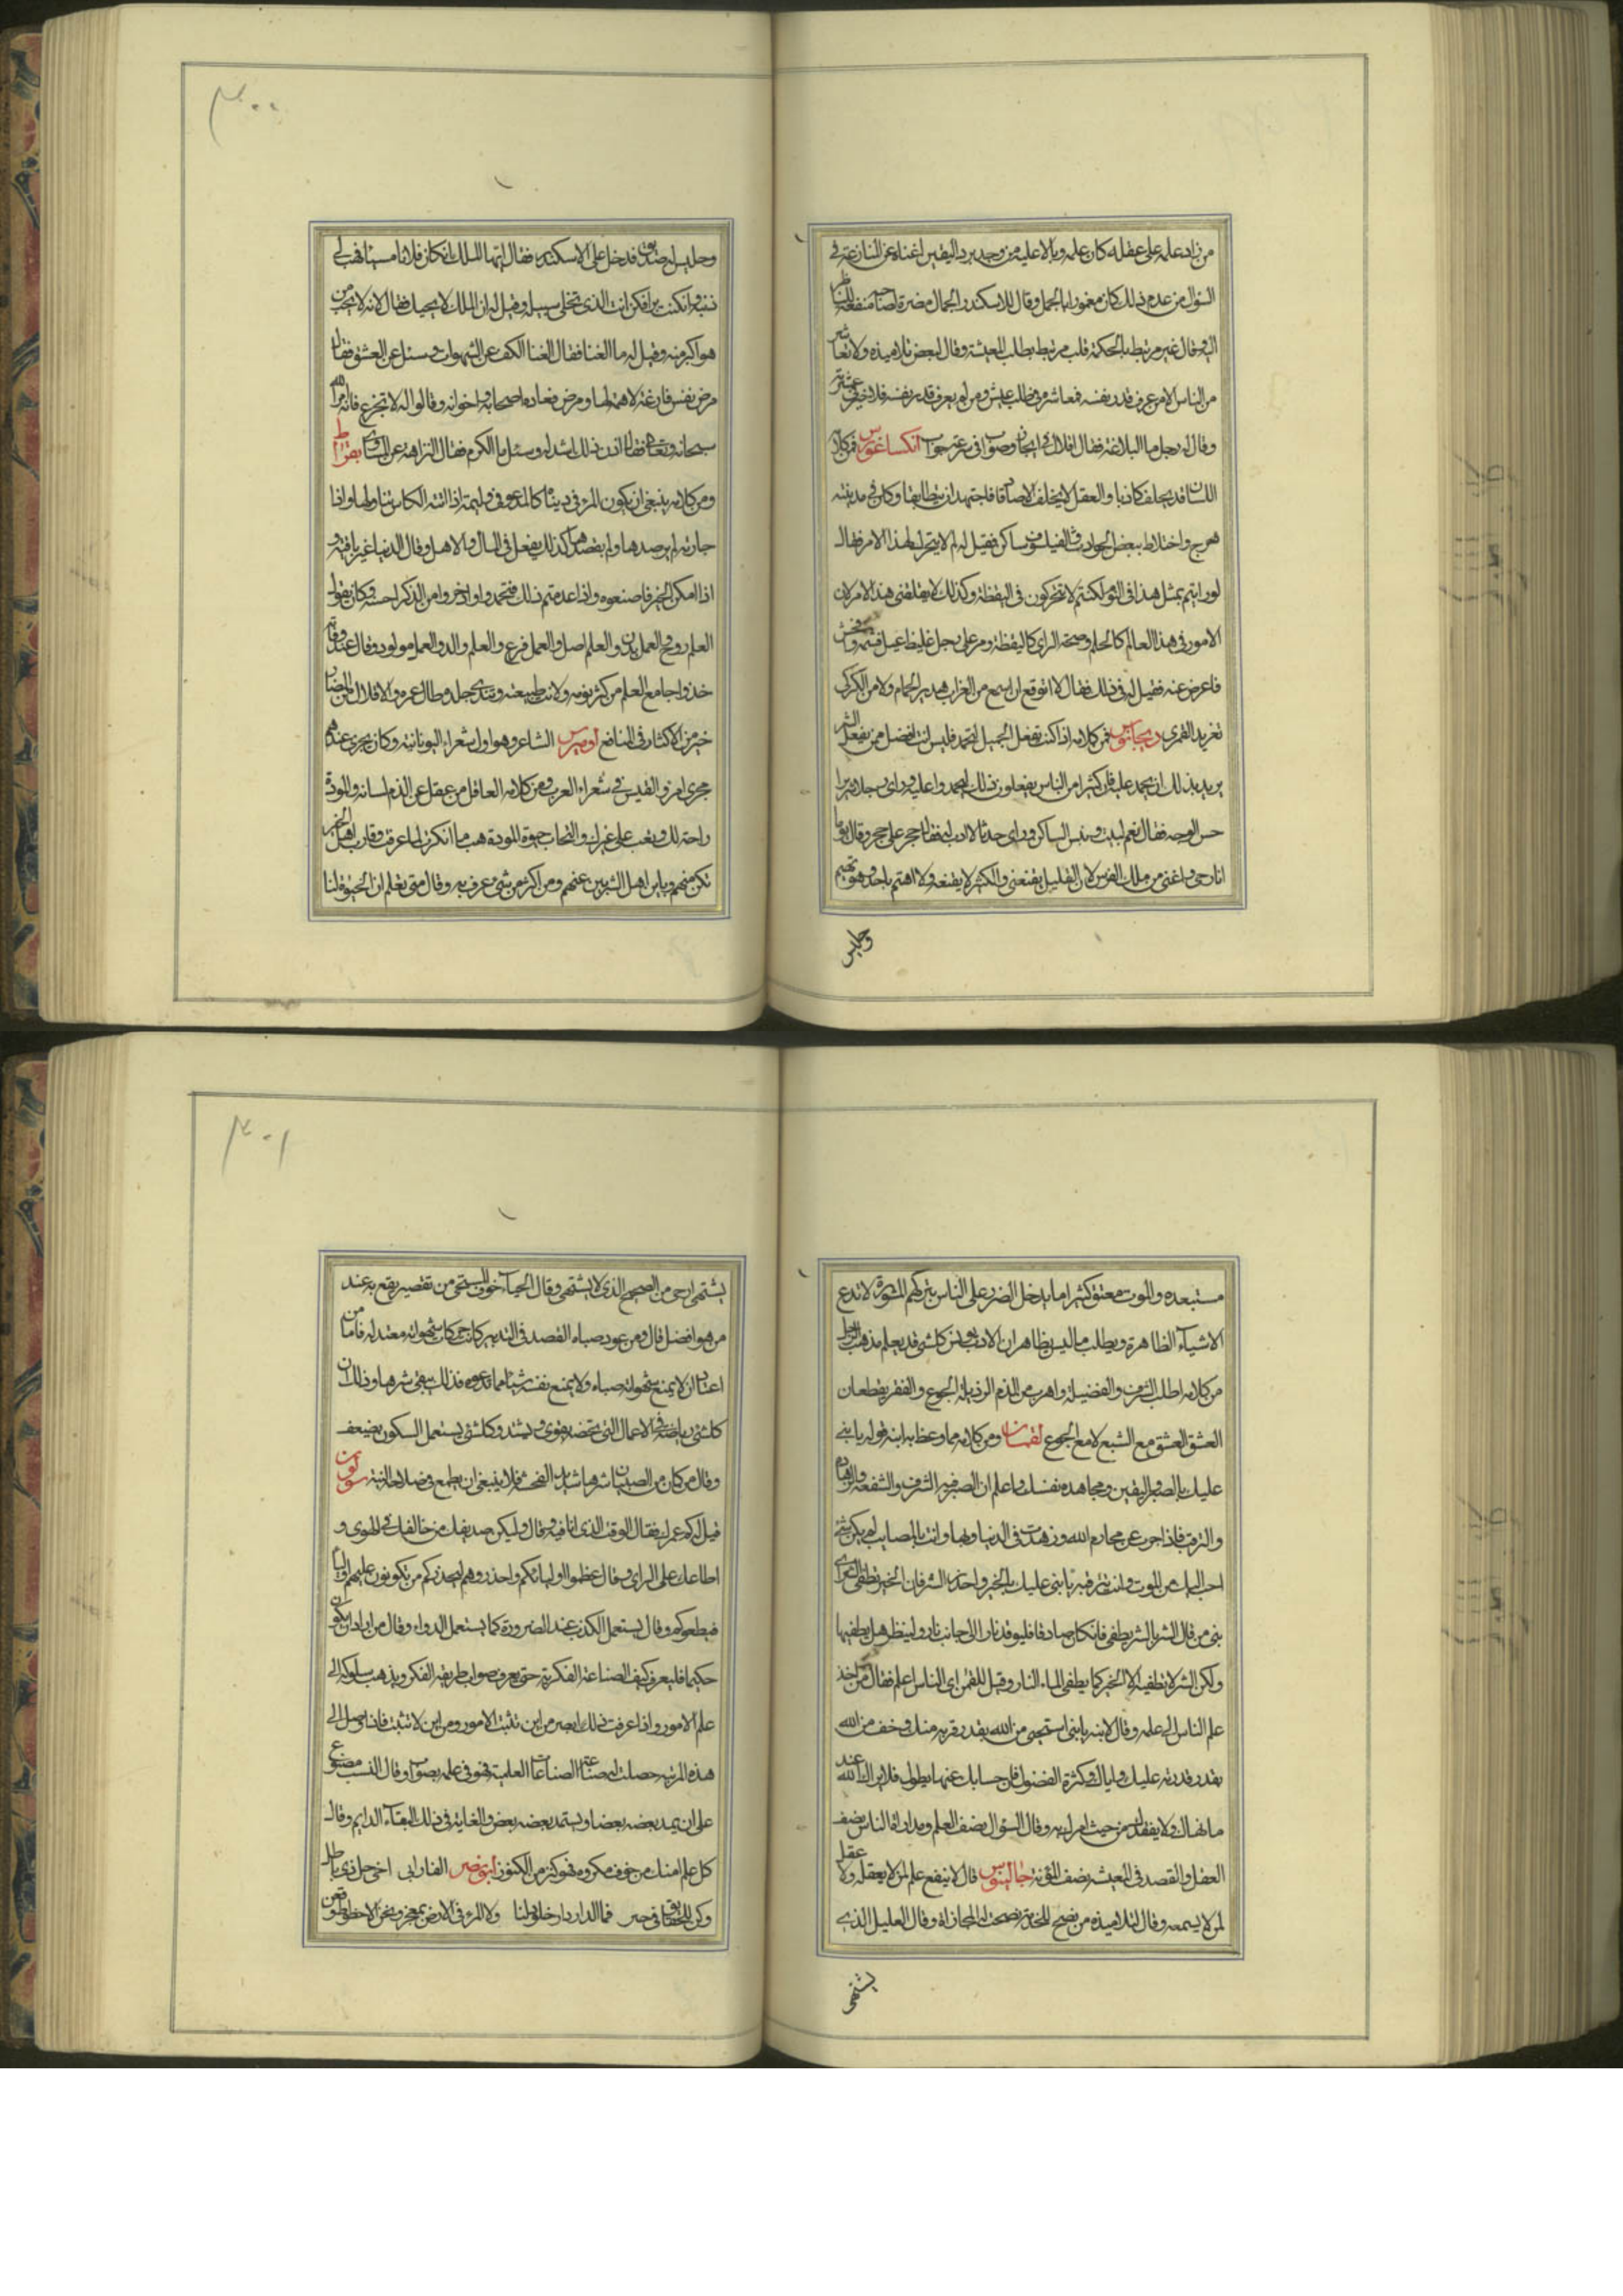 من زاد علمه على عقله كان علمه وبالا عليه من وجد برد اليقين اغناه عن المنازعة في
السؤال من عدم ذلك كان مغمورا بالجهل وقال للاسكندر الجمال مضرة لصاحبه منفعة للناظر
اليه وقال غير مرتبط بالحكمة قلب مرتبط بطلب المعيشة وقال لبعض تلاميذه ولا تعاشر
من الناس الا من عرف قدر نفسه فمعاشره في طلب عيش ومن لم يعرف قدر نفسه فلا خير في عشرته
وقال له رجل ما البلاغة فقال اقلال في ايجاز وصواب في سرعة جواب انكساغورس فمن كلامه
اللسان قد يحلف كاذبا والعقل لا يحلف الا صادقا فاجتهد ان يتطابقا وكان في مدينته
هرج واختلاط ببعض الحوادث والفيلسوف ساكن فقيل له لم لا يتحرك لهذا الامر فقال
لو رايتم بمثل هذا في النوم لكنتم لا تتحركون في اليقظة وكذلك لا يقلقني هذا الامر لان
الامور في هذا العالم كالحلم وصحة الراي كاليقظة ومر على رجل غليظ فشتمه وفحش
فاعرض عنه فقيل له في ذلك فقال لا اتوقع ان اسمع من الغراب هدير الحمام ولا من الكركي
تغريد القمري ديوجانس فمن كلامه اذا كنت تفعل الجميل لتحمد فليس انت افضل ممن يفعل الشر
يريد بذلك ان يحمد عليه فان كثيرا من الناس يفعلون ذلك ليحمدوا عليه وراى رجلا شريرا
حسن الوجه فقال نعم البيت وبئس الساكن وراى حدثا لا ادب له فقال حجر على حجر وقال يوما
انا رحي واغنى من ملك الفرس لان القليل يقنعني والكثير لا يقنعه ولا اهتم باحد وهو يهتم
وجلس
٣٠٠
وجليس له صديق فدخل على الاسكندر فقال ايها الملك ان كان فلانا مسيئا فهب لي
ذنبه وان كنت برا فكن انت الذي تخلي سبيله وقيل له ان الملك لا يحبك فقال لانه لا يحب من
هو اكبر منه وقيل له ما الغنا فقال الغنا الكف عن الشهوات وسئل عن العشق فقال
مرض نفس فارغة لا همة لها ومرض فعاده اصحابه واخوانه وقالوا له لا تجزع فانه امر الله
سبحانه وتعالى فقال اذن ذلك اشد له وسئل ما الكرم فقال النزاهة عن المساوي بقراط
ومن كلامه ينبغي ان يكون المرء في دنياه كالمدعو في وليمة اذا اتته الكاس تناولها واذا
جازته لم يرصدها ولم يقصدها كذلك يفعل في المال والاهل وقال الدنيا غير باقية و
اذا امكن الخير فاصنعوه واذا عدمتم ذلك فتحمدوا وادخروا من الذكر احسنه وكان يقول
العلم روح والعمل بدن والعلم اصل والعمل فرع والعلم والد والعمل مولود وقال عند وفاته
خذوا جامع العلم من كثر نومه ولانت طبيعته ونديت جلده طال عمره والاقلال من الضار
خير من الاكثار في النافع اوميرس الشاعر وهو اول شعراء اليونانية وكان يجري عندهم
مجرى امرؤ القيس في شعراء العرب ومن كلامه العاقل من عقل عن الذم لسانه والمودة
راحة لك وتعب على غيرك والتحاب حيوة المودة هب ما انكرت لما عرفت وقارب اهل الخير
تكن منهم وباين اهل الشر تبن عنهم ومن اكثر من شي عرف به وقال متى يعلم ان الحيوة لنا
مستعبده والموت معتق كثيرا ما يدخل الضرر على الناس بتركهم المشورة لا تدع
الاشياء الظاهرة وتطلب ما ليس بظاهر ان الادب يزين كل شي قد يعلم مذهب الرجل
من كلامه اطلب الشرف والفضيلة واهرب من الذم الرذيلة الجوع والفقر يقطعان
العشق العشق مع الشبع لا مع الجوع لقمان ومن كلامه مما وعظ به ابنه قوله يا بني
عليك بالصبر واليقين ومجاهدة نفسك واعلم ان الصبر فيه الشرف والشفقة والزهادة
والترقب فاذا اجرت عن محارم الله وزهدت في الدنيا وتهاونت بالمصايب لم يكن شي
احب اليك من الموت وانت تترقبه يا بني عليك بالخير واحذر الشر فان الخير يطفئ الشر اى
بني من قال الشر بالشر يطفى فان كان صادقا فليوقد نارا الى جانب نار ولينظر هل يطفيها
ولكن الشر لا تطفيه الا الخير كما يطفي الماء النار وقيل للقمن اي الناس اعلم فقال من اخذ
علم الناس الى علمه وقال لابنه يا بني استحيى من الله بقدر قربه منك وخف من الله
بقدر قدرته عليك واياك وكثرة الفضول فان حسابك عنها يطول فلا يراك الله عند
ما نهاك ولا يفقدك من حيث امرك به وقال السؤال نصف العلم ومداراة الناس نصف
العقل والقصد في المعيشة نصف المؤنة جالينوس قال لا ينفع علم لمن لا يعقله ولا عقل
لمن لا يسمعه وقال لتلاميذه من نصح للخدمة نصحت له المجازاة وقال العليل الذي
يشتهي
٣٠١
يشتهي ارجى من الصحيح الذي لا يشتهي وقال الحياء خوف المستحي من تقصير يقع به عند
من هو افضل قال ومن عود صباه القصد في التدبير كانت حركات شهواته معتدلة فاما من
اعتاد ان لا يمنع شهواته صباه ولا يمنع نفسه شيئا مما تدعوه فذلك يبقى شرها وذلك ان
كل شي رياضته في الاعمال التي تخصه يقوى ويشتد وكل شي يستعمل السكون يضعف
وقال من كان من الصبيان شرها شديد القحة فلا ينبغي ان يطمع في صلاحه البتة سولون
قيل له كم عمرك فقال الوقت الذي انا فيه وقال وليكن صديقك من خالفك في الهوى و
اطاعك على الراي وقال عظموا اولياءكم واحذروهم ليحذركم من يكونون عليهم اوليا
فيطيعوكم وقال يستعمل الكذب عند الضرورة كما يستعمل الدواء وقال من اراد ان يكون
حكيما فليعرف كيف الصناعة الفكرية حتى يعرف صواب طريقة الفكر ويذهب سلوكه الى
علم الامور واذا عرفت ذلك ابصر من اين تثبت الامور ومن اين لا تثبت فاذا وصل الى
هذه المرتبة حصلت له صناعة الصناعات العلمية فهو في علمه بصواب وقال النسب مصنوع
على ان يمد بعضه بعضا ويستمد بعضه بعض والغاية في ذلك البقاء الدايم وقال
كل علم امنك من خوف مكروه فهو كنز من الكنوز ابو نصر الفارابي اخي خل حيز ذي باطل
وكن للحقايق في حيز فما الدار دار خلود لنا ولا المرء في الارض بمعجز وهل نحن الا خطوط وقعن